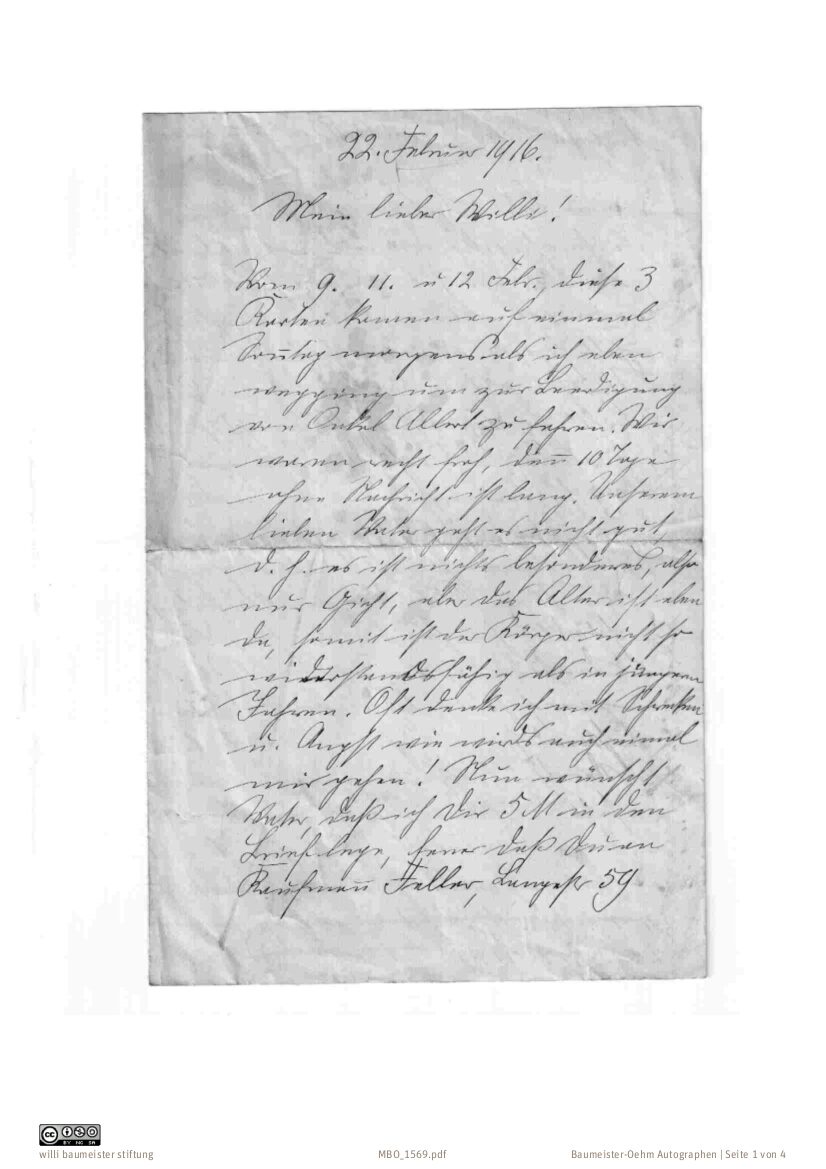 22. Februar 1916.
Mein lieber Willi!
Vom 9. 11. u 12 Febr., diese 3
Karten kamen auf einmal
Soñtag morgens als ich eben
wegging um zur Beerdigung
von Onkel Albert zu fahren. Wir
waren recht froh, deñ 10 Tage
ohne Nachricht ist lang. Unserem
lieben Vater geht es nicht gut,
d. h. es ist nichts besonderes, also
nur Gicht, aber das Alter ist eben
da, somit ist der Körper nicht so
widerstandsfähig als in jüngern
Jahren. Oft denke ich mit Schrecken
u. Angst wie wirds auch einmal
mir gehen! Nun wünscht
Vater, daß ich Dir 5 M in den
Brief lege, ferner daß Du an
Kaufmañ Feller, Langestr 59
willi baumeister stiftung
MBO_1569.pdf
Baumeister-Oehm Autographen | Seite 1 von 4
CC BY NC SA